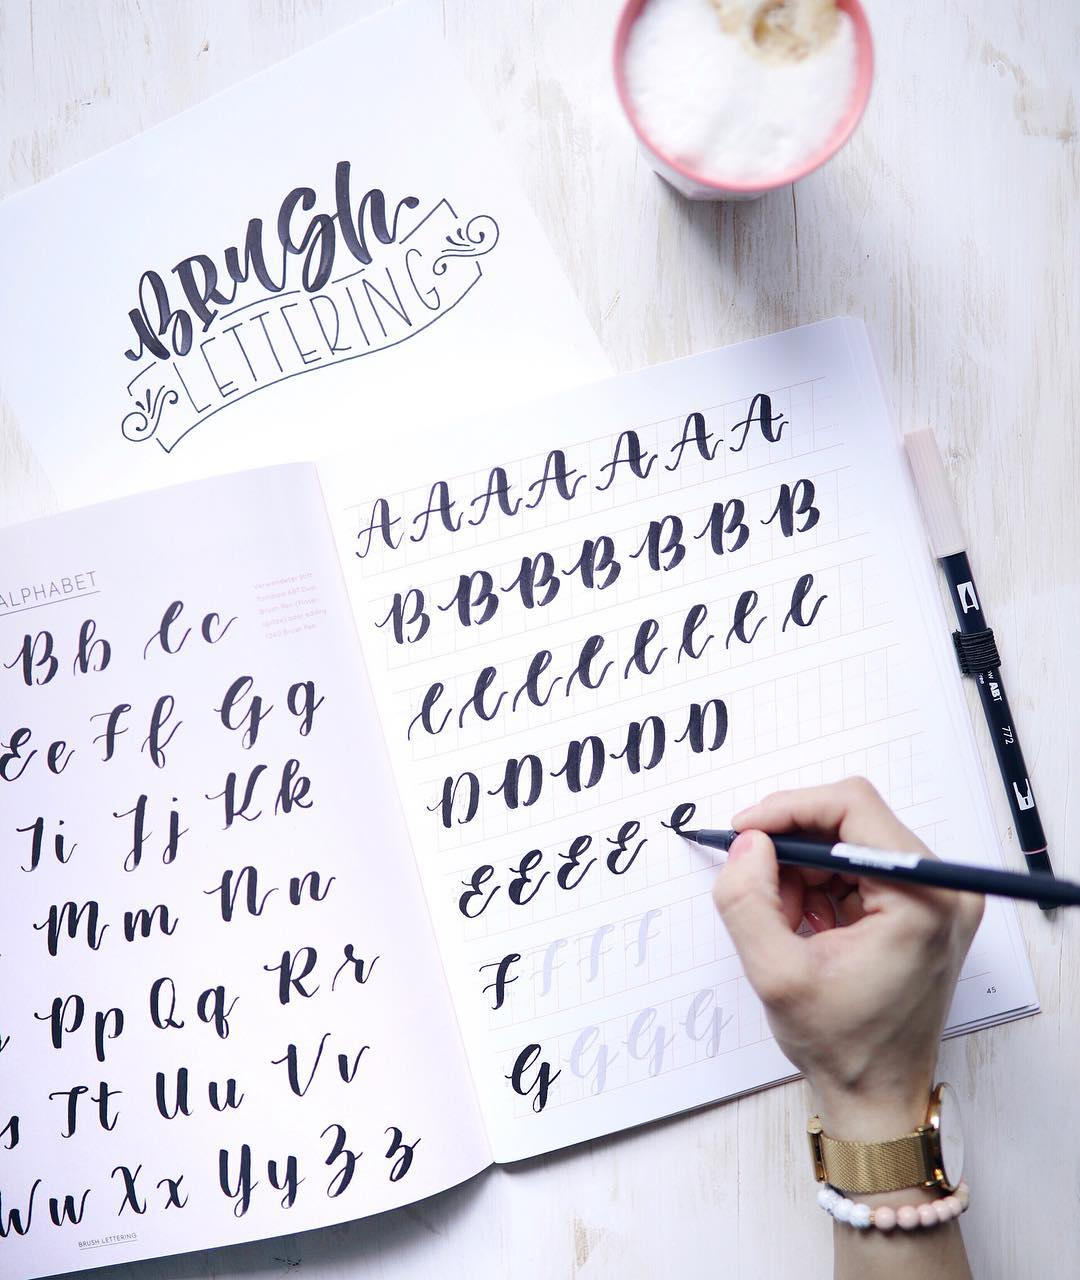 BRUSh
LETTERING
ALPHABET
Verwendeter Stift:
Tombow ABT Dual
Brush Pen (Pinsel-
spitze) oder edding
1340 Brush Pen
Bb Cc
Ee Ff Gg
Ii Jj Kk
Mm Nn
Pp Qq Rr
s Tt Uu Vv
Ww Xx Yy Zz
BRUSH LETTERING
A A A A A A A
B B B B B B B
C C C C C C C C
D D D D D
E E E E E
F F F F
G G G G
45
ABT
772